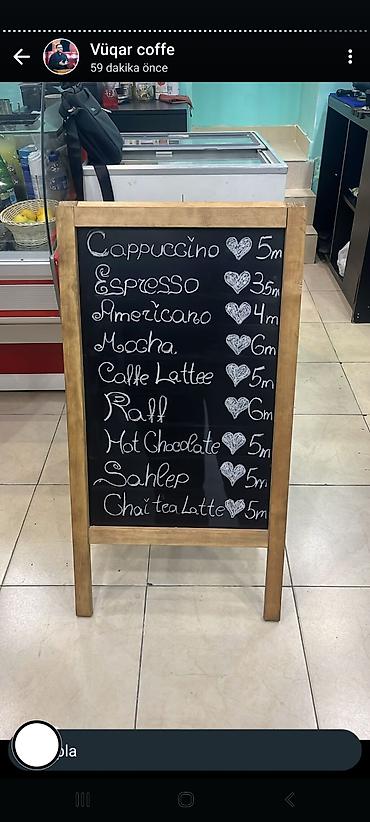 Vüqar coffe
59 dakika önce
Cappuccino 5m
Espresso 3.5m
Americano 4m
Mocha. 6m
Caffe Lattee 5m
Raff 6m
Hot Chocolate 5m
Sahlep 5m
Chai tea Latte 5m